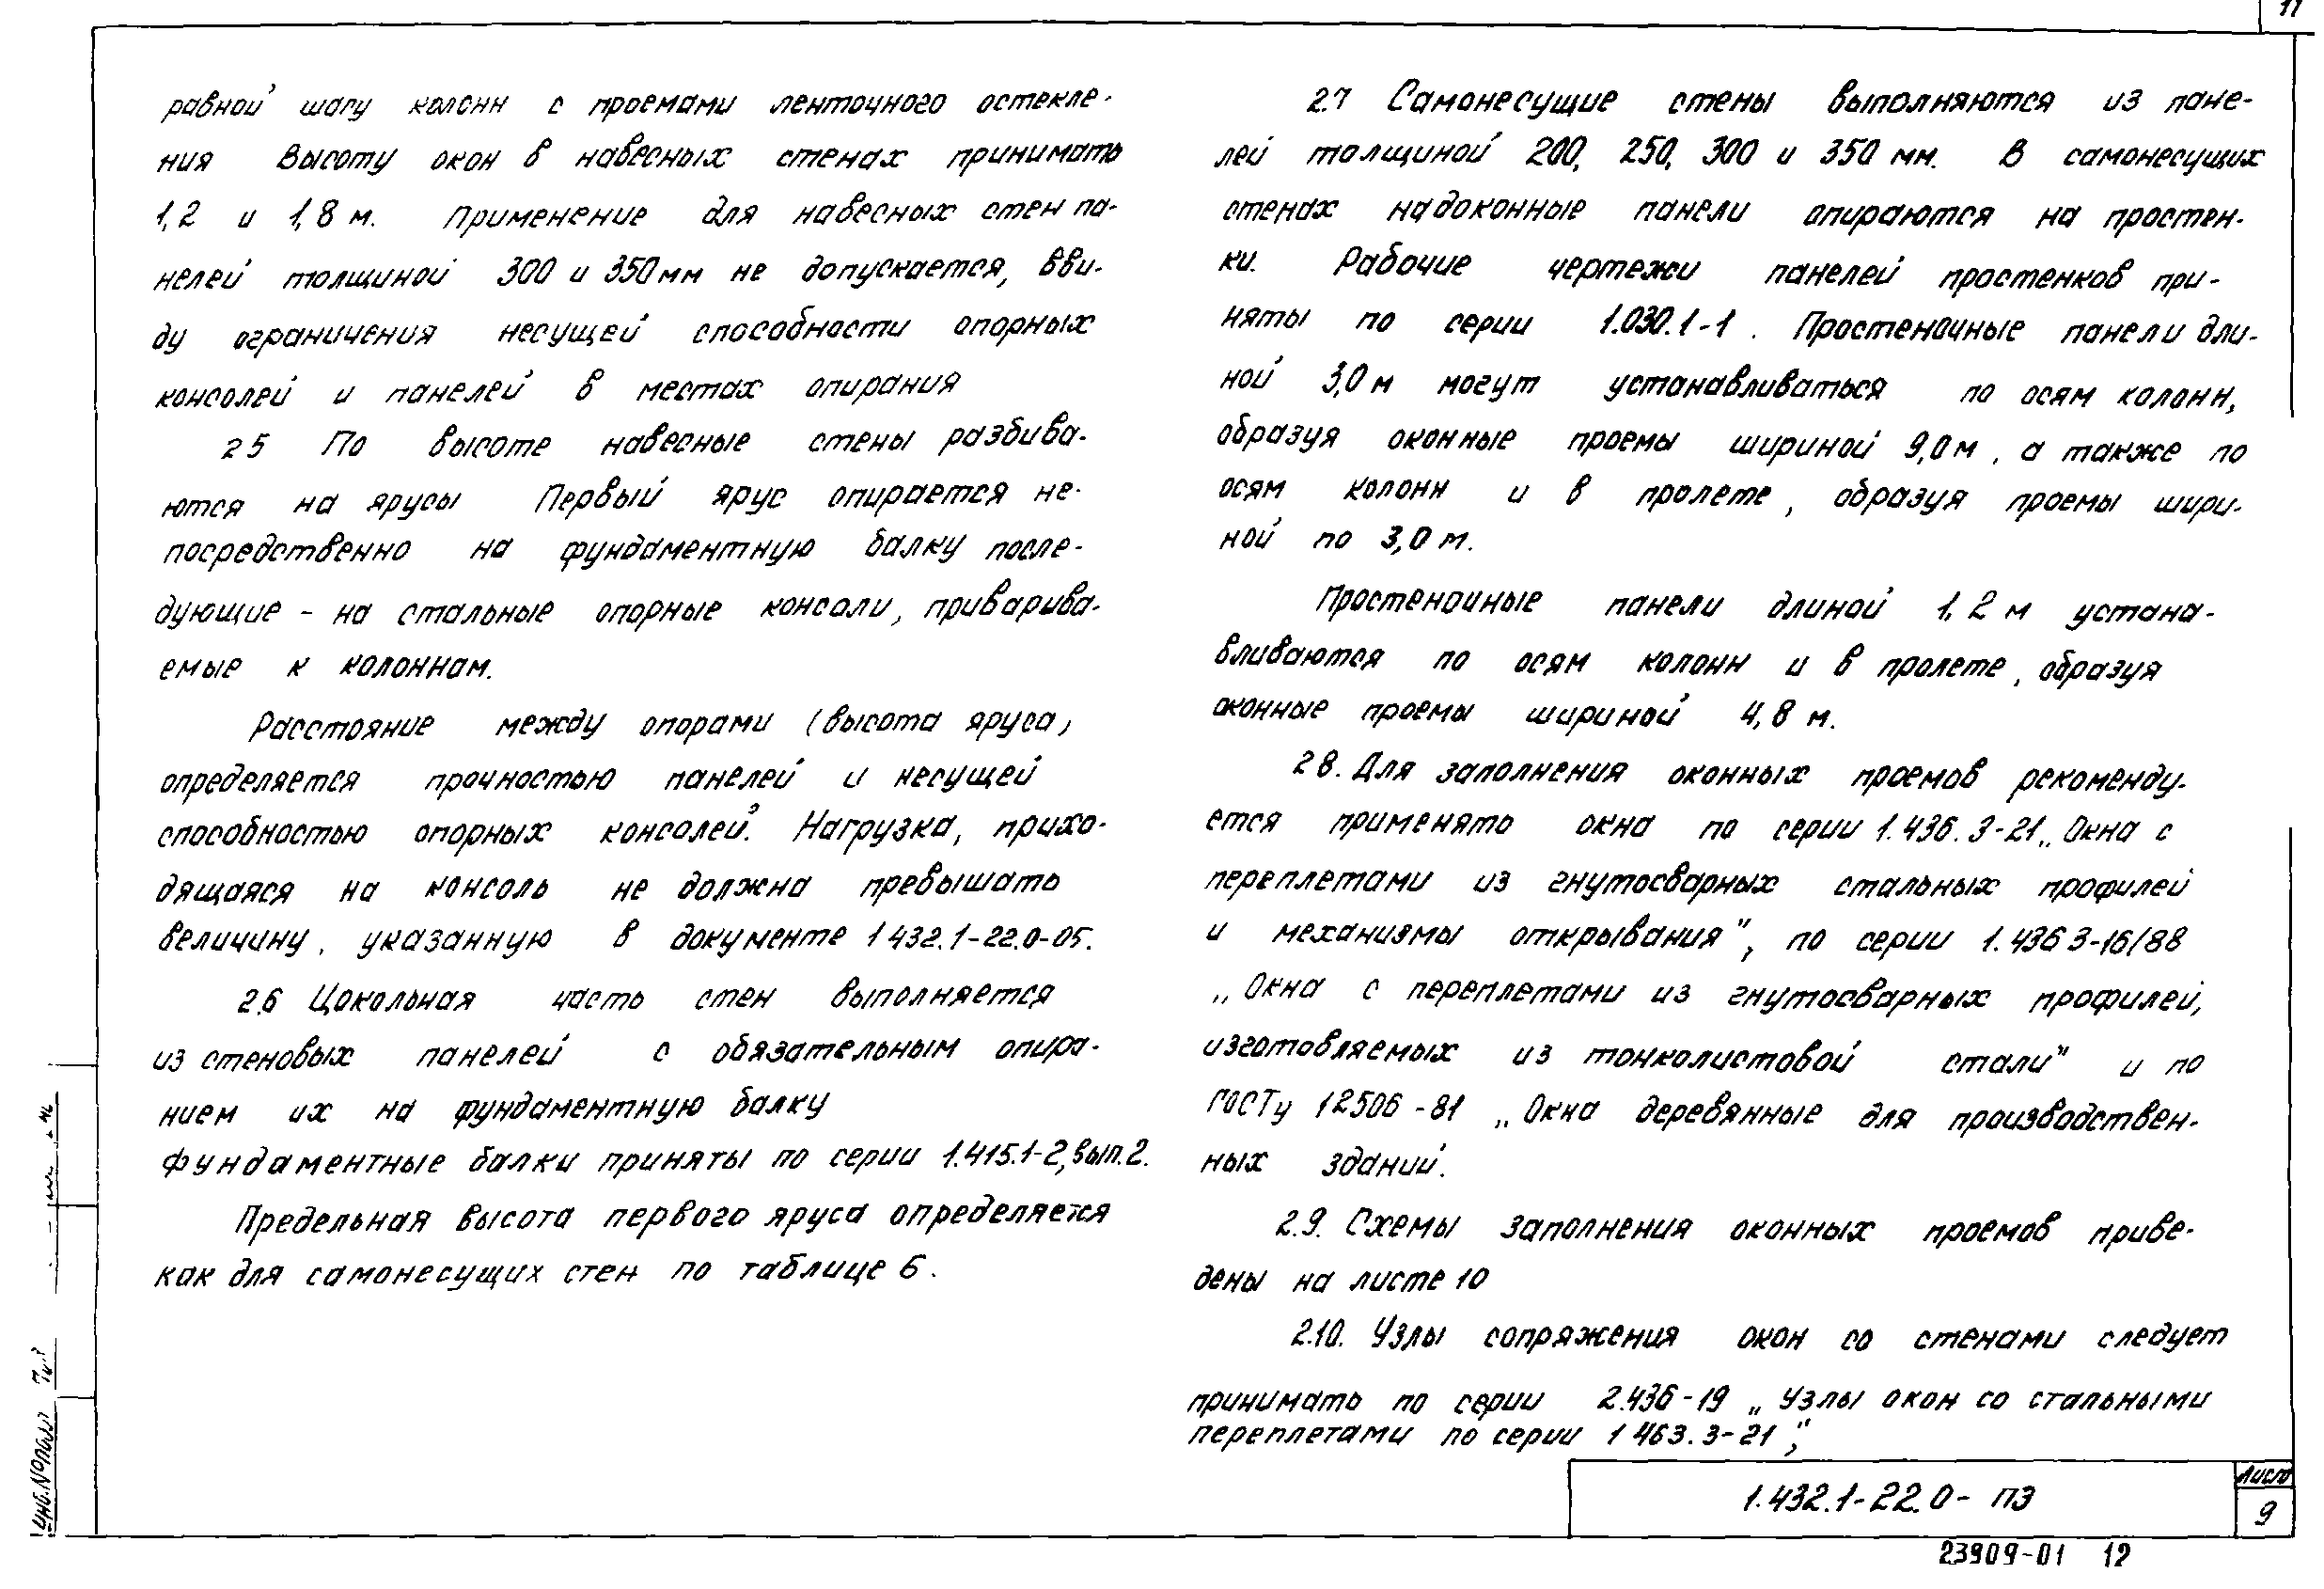 11
равной шагу колонн с проемами ленточного остекле-
ния Высоту окон в навесных стенах принимать
1,2 и 1,8 м. Применение для навесных стен па-
нелей толщиной 300 и 350 мм не допускается, вви-
ду ограничения несущей способности опорных
консолей и панелей в местах опирания
2 5 По высоте навесные стены разбива-
ются на ярусы Первый ярус опирается не-
посредственно на фундаментную балку после-
дующие - на стальные опорные консоли, приварива-
емые к колоннам.
Расстояние между опорами (высота яруса)
определяется прочностью панелей и несущей
способностью опорных консолей. Нагрузка, прихо-
дящаяся на консоль не должна превышать
величину, указанную в документе 1 432.1-22.0-05.
2.6 Цокольная часть стен выполняется
из стеновых панелей с обязательным опира-
нием их на фундаментную балку
Фундаментные балки приняты по серии 1.415.1-2, вып.2.
Предельная высота первого яруса определяется
как для самонесущих стен по таблице 6.
2.7 Самонесущие стены выполняются из пане-
лей толщиной 200, 250, 300 и 350 мм. В самонесущих
стенах надоконные панели опираются на простен-
ки. Рабочие чертежи панелей простенков при-
няты по серии 1.030.1-1. Простеночные панели дли-
ной 3,0 м могут устанавливаться по осям колонн,
образуя оконные проемы шириной 9,0 м, а также по
осям колонн и в пролете, образуя проемы шири-
ной по 3,0 м.
Простеночные панели длиной 1,2 м устана-
вливаются по осям колонн и в пролете, образуя
оконные проемы шириной 4,8 м.
2 8. Для заполнения оконных проемов рекоменду-
ется применять окна по серии 1.436.3-21 „Окна с
переплетами из гнутосварных стальных профилей
и механизмы открывания", по серии 1.436 3-16/88
„Окна с переплетами из гнутосварных профилей,
изготовляемых из тонколистовой стали" и по
ГОСТу 12506-81 „Окна деревянные для производствен-
ных зданий.
2.9. Схемы заполнения оконных проемов приве-
дены на листе 10
2.10. Узлы сопряжения окон со стенами следует
принимать по серии 2.436-19 „Узлы окон со стальными
переплетами по серии 1 463.3-21",
Инв.№подл
1.432.1-22.0-ПЗ
Лист
9
23909-01 12